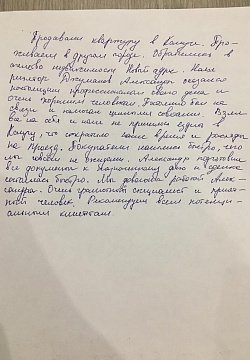 Продавали квартиру в Калуге. Про-
живаем в другом городе. Обратились в
агенство недвижимости Новый адрес. Наш
риэлтор Александр оказался
настоящим профессионалом своего дела и
очень хорошим человеком. Постоянно был на
связи и помогал ценными советами. Взял
все на себя и нам не пришлось ездить в
Калугу, что сократило наше время и расходы
на проезд. Покупатели нашлись быстро, чего
мы совсем не ожидали. Александр подготовил
все документы к назначенному дню и сделка
состоялась быстро. Мы довольны работой Алек-
сандра. Очень грамотный специалист и прият-
ный человек. Рекомендуем всем потенци-
альным клиентам.